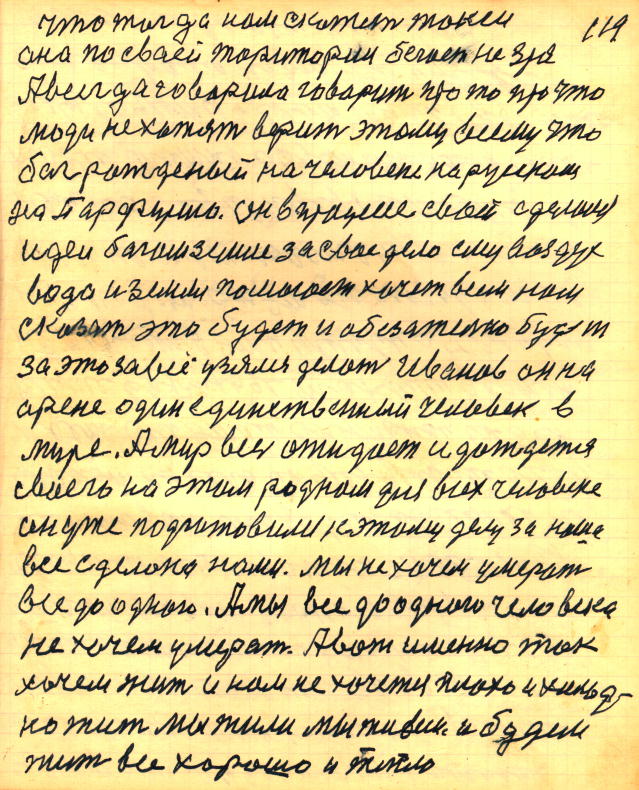 что тогда нам скажет такси 119
она по сваей торитории бегает не зря
А всегда говорила говорит про то про что
люди не хотят верит этому всему что
бог рожденый на человеке на русском
на Парфушо. он в природе свой сделал
идеи богом земли за свое дело ему воздух
вода и земля помогает хочет всем нам
сказат это будет и обезателно будет
за это за все узялся делат Иванов он на
арене один единственный человек в
мире. А мир весь ожидает и дождется
своего на этом родном для всех человеке
он уже подготовили к этому делу за нова
все сделоно нами. мы не хочем умерат
все до одного. А мы все до одного человека
не хочем умерат. А вот именно так
хочем жит и нам не хочется плохо и холод-
но жит мы жили мы живем. и будем
жит все хорошо и тепло